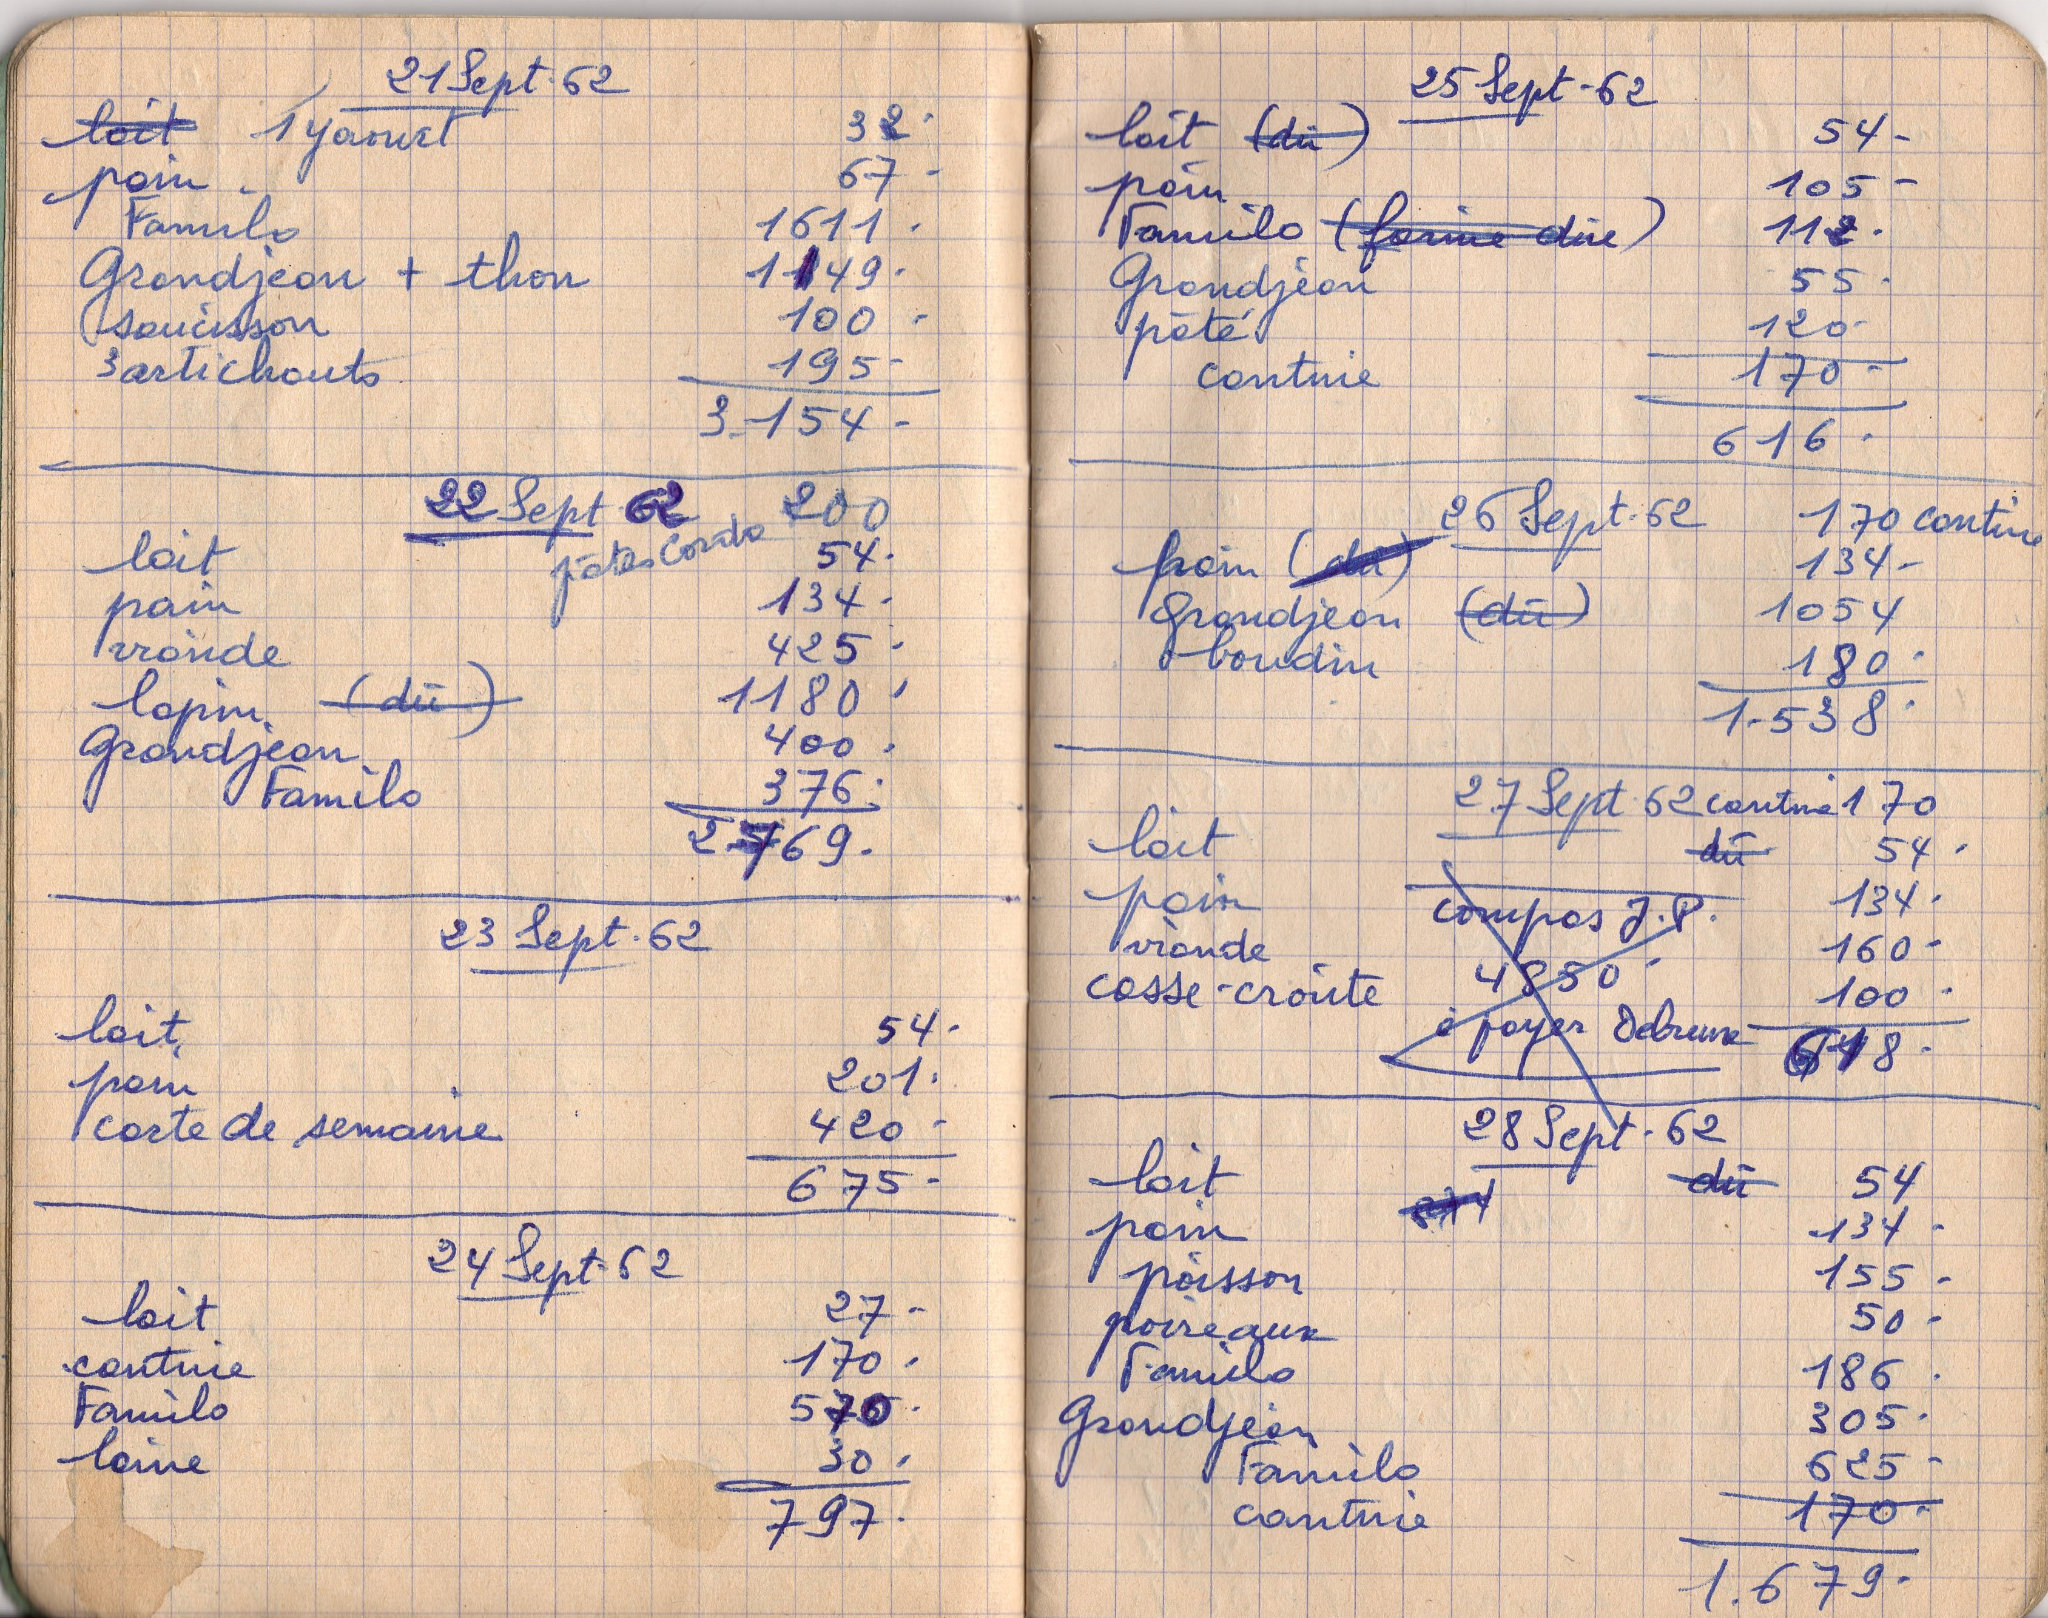 21 Sept. 62
lait 1 yaourt 32.
pain 67 -
Familo 1611.
Grandjean + thon 1149.
saucisson 100 -
3 artichauts 195 -
3.154 -
22 Sept 62 200
pâtes Corda
lait 54.
pain 134.
viande 425 -
lapin (dû) 1180
Grandjean 400.
Familo 376.
2.769.
23 Sept. 62
lait 54.
pain 201.
carte de semaine 420 -
675 -
24 Sept. 62
lait 27 -
cantine 170.
Familo 570.
laine 30.
797.
25 Sept. 62
lait (dû) 54 -
pain 105 -
Familo (farine dûe) 112.
Grandjean 55.
pâté 120.
cantine 170 -
616.
26 Sept. 62 170 cantine
pain (dû) 134 -
Grandjean (dû) 1054
boudin 180.
1.538.
27 Sept. 62 cantine 170
lait dû 54.
pain 134.
compas J.P.
viande 160 -
4850 -
casse-croûte 100.
à payer 618.
28 Sept. 62
lait dû 54
pain 134 -
poisson 155 -
poireaux 50 -
Familo 186.
Grandjean 305.
Familo 625 -
cantine 170.
1.679.